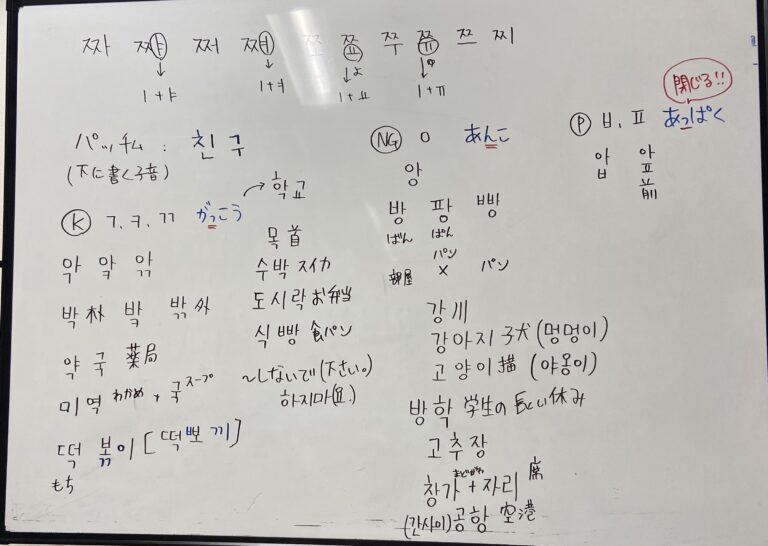 짜 쨔 쩌 쪄 쪼 쬬 쭈 쮸 쯔 찌
ㅣ+ㅑ ㅣ+ㅕ ㅣ+ㅛ ㅣ+ㅠ
よ ゆ
パッチム : 친구
(下に書く子音)
K ㄱ, ㅋ, ㄲ がっこう → 학교
악 앜 앆
박 朴 밬 밖 外
약국 薬局
미역 わかめ + 국 スープ
떡볶이 [떡뽀끼]
もち
목 首
수박 スイカ
도시락 お弁当
식빵 食パン
~しないで(下さい。)
하지마(요.)
NG ㅇ あんこ
앙
방 팡 빵
ばん ぱん
部屋 パン × パン
강 川
강아지 子犬 (멍멍이)
고양이 猫 (야옹이)
방학 学生の長い休み
고추장
창가 まどがわ + 자리 席
(간사이)공항 空港
閉じる!!
P ㅂ, ㅍ あっぱく
압 앞
前